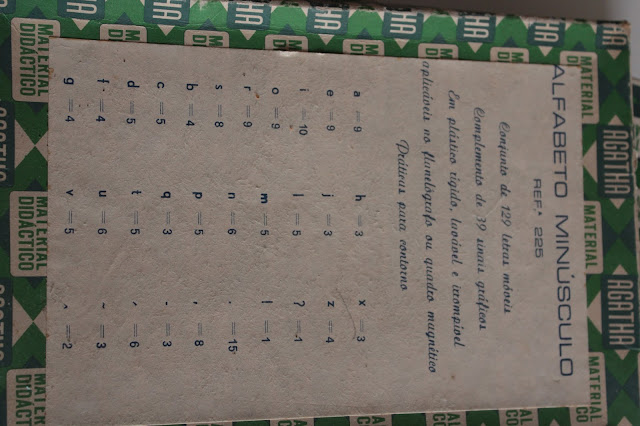 ALFABETO MINÚSCULO
REF.ª 225
Conjunto de 129 letras móveis
Complemento de 39 sinais gráficos
Em plástico rígido, lavável e irrompível
aplicáveis no flanelógrafo ou quadro magnético
Práticas para contorno
a = 9
e = 9
i = 10
o = 9
r = 9
s = 8
b = 4
c = 5
d = 5
f = 4
g = 4
h = 3
j = 3
l = 5
m = 5
n = 6
p = 5
q = 3
t = 5
u = 6
v = 5
x = 3
z = 4
? = 1
! = 1
. = 15
, = 8
= 3
= 6
~ = 3
^ = 2
MATERIAL DIDÁCTICO
AGATHA
MATERIAL DIDÁCTICO
AGATHA
MATERIAL DIDÁCTICO
AGATHA
MATERIAL
AGATHA
MATERIAL